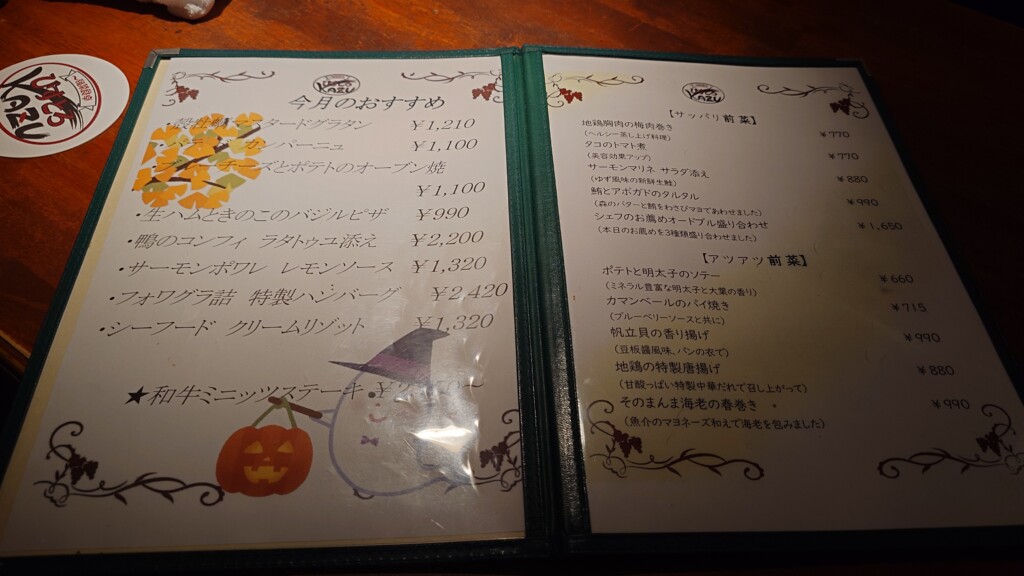 KAZU
KAZU
今月のおすすめ
タードグラタン ￥1,210
ンパーニュ ￥1,100
ズとポテトのオーブン焼
￥1,100
・生ハムときのこのバジルピザ ￥990
・鴨のコンフィ ラタトゥユ添え ￥2,200
・サーモンポワレ レモンソース ￥1,320
・フォワグラ詰 特製ハンバーグ ￥2,420
・シーフード クリームリゾット ￥1,320
★和牛ミニッツステーキ
KAZU
【サッパリ前菜】
地鶏胸肉の梅肉巻き ￥770
（ヘルシー蒸し上げ料理）
タコのトマト煮 ￥770
（美容効果アップ）
サーモンマリネ サラダ添え ￥880
（ゆず風味の新鮮生鮭）
鮪とアボガドのタルタル ￥990
（森のバターと鮪をわさびマヨであわせました）
シェフのお薦めオードブル盛り合わせ ￥1,650
（本日のお薦めを3種類盛り合わせました）
【アツアツ前菜】
ポテトと明太子のソテー ￥660
（ミネラル豊富な明太子と大葉の香り）
カマンベールのパイ焼き ￥715
（ブルーベリーソースと共に）
帆立貝の香り揚げ ￥990
（豆板醤風味、パンの衣で）
地鶏の特製唐揚げ ￥880
（甘酸っぱい特製中華だれで召し上がって）
そのまんま海老の春巻き ￥990
（魚介のマヨネーズ和えで海老を包みました）